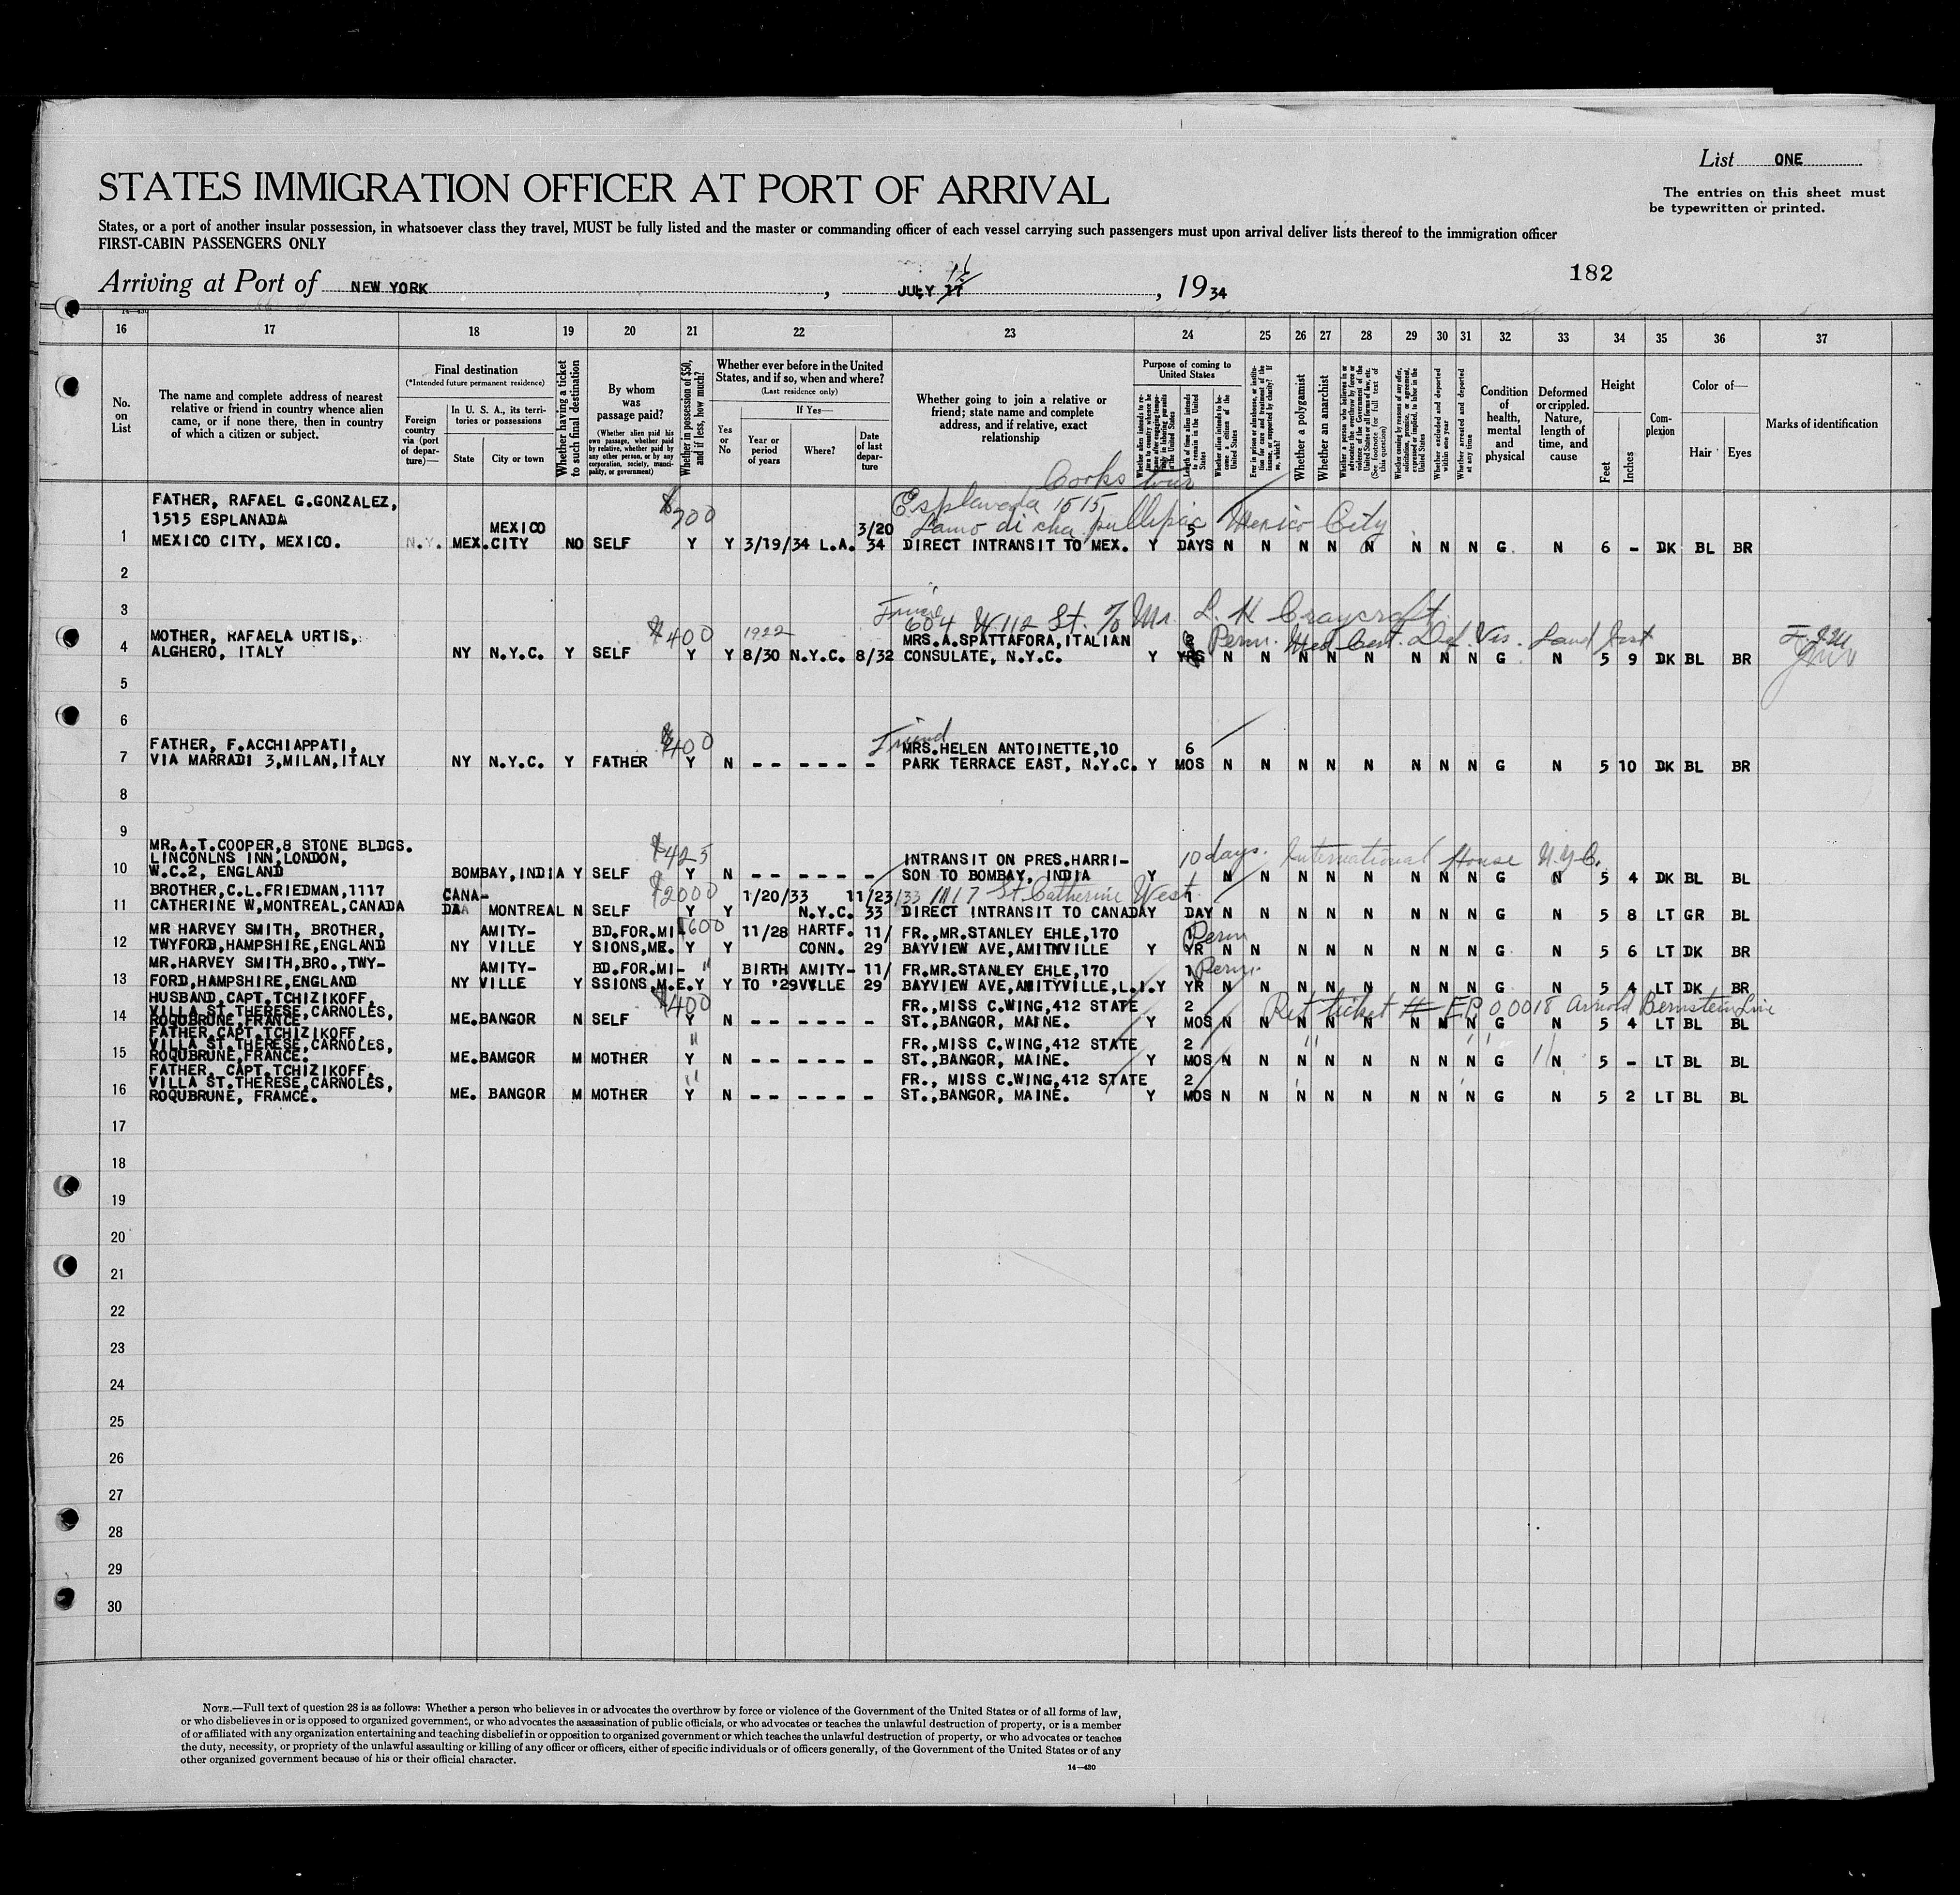 List ONE
The entries on this sheet must
be typewritten or printed.
STATES IMMIGRATION OFFICER AT PORT OF ARRIVAL
States, or a port of another insular possession, in whatsoever class they travel, MUST be fully listed and the master or commanding officer of each vessel carrying such passengers must upon arrival deliver lists thereof to the immigration officer
FIRST-CABIN PASSENGERS ONLY
182
Arriving at Port of NEW YORK, JULY 17 16, 1934
14—430
16 17 18 19 20 21 22 23 24 25 26 27 28 29 30 31 32 33 34 35 36 37
No. on List
The name and complete address of nearest
relative or friend in country whence alien
came, or if none there, then in country
of which a citizen or subject.
Final destination
(*Intended future permanent residence)
Foreign country via (port of departure)—
In U. S. A., its territories or possessions
State
City or town
Whether having a ticket to such final destination
By whom was passage paid?
(Whether alien paid his own passage, whether paid by relative, whether paid by any other person, or by any corporation, society, municipality, or government)
Whether in possession of $50, and if less, how much?
Whether ever before in the United States, and if so, when and where?
(Last residence only)
Yes or No
If Yes—
Year or period of years
Where?
Date of last departure
Whether going to join a relative or
friend; state name and complete
address, and if relative, exact
relationship
Purpose of coming to United States
Length of time alien intends to remain in the United States
Whether alien intends to become a citizen of the United States
Whether a polygamist
Whether an anarchist
Whether excluded and deported within one year
Whether arrested and deported at any time
Condition of health, mental and physical
Deformed or crippled. Nature, length of time, and cause
Height
Feet
Inches
Complexion
Color of—
Hair
Eyes
Marks of identification
Cooks tour
FATHER, RAFAEL G.GONZALEZ, $700 Esplanada 1515
1515 ESPLANADA MEXICO 3/20 Mexico City 5
1 MEXICO CITY, MEXICO. N.Y. MEX. CITY NO SELF Y Y 3/19/34 L.A. 34 DIRECT INTRANSIT TO MEX. Y DAYS N N N N N N N N G N 6 - DK BL BR
2
3 Friend 604 W 112 St. % Mr. L. H Craycroft
MOTHER, RAFAELA URTIS, $400 1922 MRS.A.SPATTAFORA, ITALIAN Perm. Med Cert. Def. Vis.
4 ALGHERO, ITALY NY N.Y.C. Y SELF Y Y 8/30 N.Y.C. 8/32 CONSULATE, N.Y.C. Y YRS N N N N N N N N G N 5 9 DK BL BR
5
6 Friend
FATHER, F.ACCHIAPPATI, $400 MRS.HELEN ANTOINETTE,10 6
7 VIA MARRADI 3,MILAN,ITALY NY N.Y.C. Y FATHER Y N - - - - - - - PARK TERRACE EAST, N.Y.C. Y MOS N N N N N N N N G N 5 10 DK BL BR
8
9
MR.A.T.COOPER,8 STONE BLDGS. $425
LINCONLNS INN,LONDON, INTRANSIT ON PRES.HARRI- 10 days. International House N.Y.C.
10 W.C.2, ENGLAND BOMBAY, INDIA Y SELF Y N - - - - - - - SON TO BOMBAY, INDIA Y N N N N N N N N G N 5 4 DK BL BL
BROTHER,C.L.FRIEDMAN,1117 CANA- $2000 1/20/33 11/23/33 1117 St Catherine West. 1
11 CATHERINE W,MONTREAL,CANADA DA MONTREAL N SELF Y Y N.Y.C. 33 DIRECT INTRANSIT TO CANADA Y DAY N N N N N N N N G N 5 8 LT GR BL
MR HARVEY SMITH, BROTHER, AMITY- BD.FOR.MI- $600 11/28 HARTF. 11/ FR.,MR.STANLEY EHLE,170 1 Perm
12 TWYFORD,HAMPSHIRE,ENGLAND NY VILLE Y SIONS,ME. Y Y CONN. 29 BAYVIEW AVE,AMITNVILLE Y YR N N N N N N N N G N 5 6 LT DK BR
MR.HARVEY SMITH,BRO.,TWY- AMITY- BD.FOR.MI- " BIRTH AMITY- 11/ FR.MR.STANLEY EHLE,170 1 Perm.
13 FORD,HAMPSHIRE,ENGLAND NY VILLE Y SSIONS,M.E. Y Y TO '29 VILLE 29 BAYVIEW AVE,AMITYVILLE,L.I. Y YR N N N N N N N N G N 5 4 LT DK BR
HUSBAND,CAPT.TCHIZIKOFF, $400
VILLA ST.THERESE,CARNOLES, FR.,MISS C.WING,412 STATE 2 Ret ticket # EP 00018 Arnold Bernstein Line
14 ROQUBRUNE,FRANCE ME.BANGOR N SELF Y N - - - - - - - ST.,BANGOR, MAINE. Y MOS N N N N N N N N G N 5 4 LT BL BL
FATHER,CAPT.TCHIZIKOFF,
VILLA ST.THERESE,CARNOLES, " FR.,MISS C.WING,412 STATE 2
15 ROQUBRUNE,FRANCE. ME.BAMGOR M MOTHER Y N - - - - - - - ST.,BANGOR, MAINE. Y MOS N N N N N N N N G N 5 - LT BL BL
FATHER, CAPT.TCHIZIKOFF,
VILLA ST.THERESE,CARNOLES, " FR., MISS C.WING,412 STATE 2
16 ROQUBRUNE, FRAMCE. ME. BANGOR M MOTHER Y N - - - - - - - ST.,BANGOR, MAINE. Y MOS N N N N N N N N G N 5 2 LT BL BL
17
18
19
20
21
22
23
24
25
26
27
28
29
30
NOTE.—Full text of question 28 is as follows: Whether a person who believes in or advocates the overthrow by force or violence of the Government of the United States or of all forms of law,
or who disbelieves in or is opposed to organized government, or who advocates the assassination of public officials, or who advocates or teaches the unlawful destruction of property, or is a member
of or affiliated with any organization entertaining and teaching disbelief in or opposition to organized government or which teaches the unlawful destruction of property, or who advocates or teaches
the duty, necessity, or propriety of the unlawful assaulting or killing of any officer or officers, either of specific individuals or of officers generally, of the Government of the United States or of any
other organized government because of his or their official character.
14—430